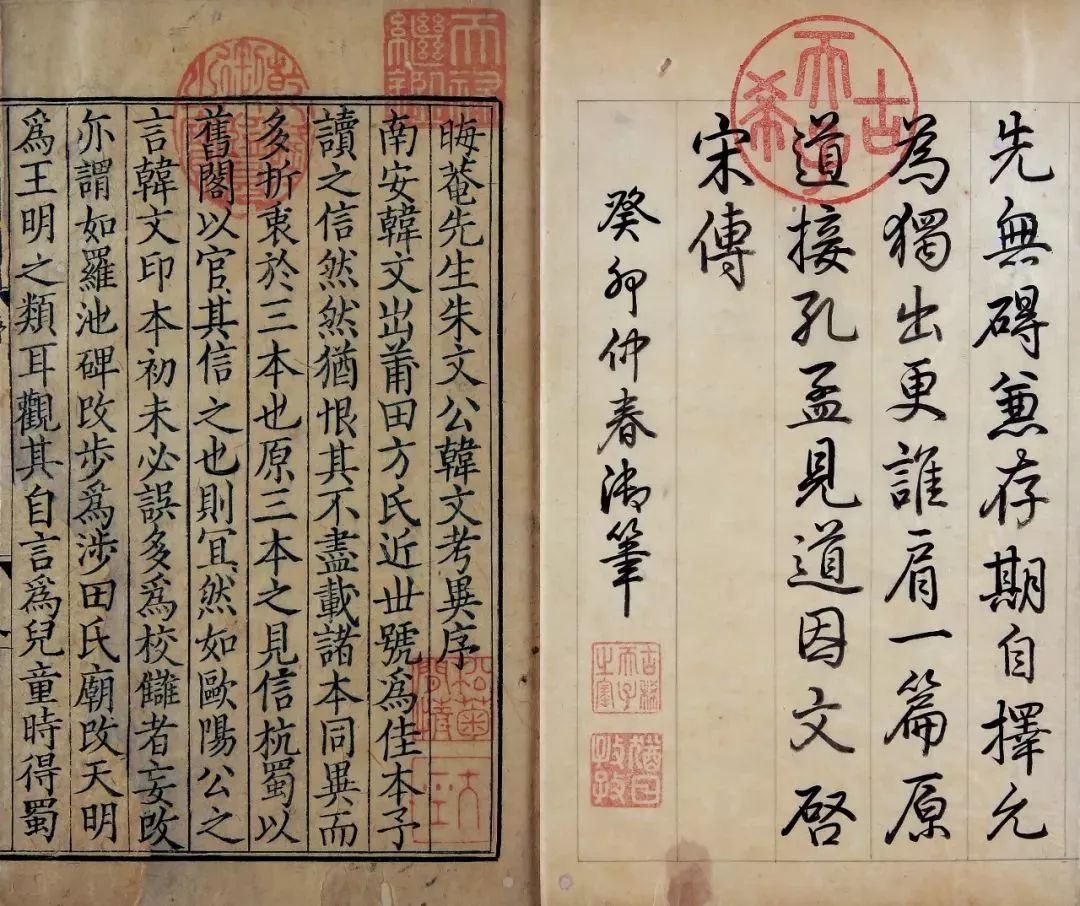 古希天子
先無碍兼存期自擇允
為獨出更誰肩一篇原
道接孔孟見道因文啓
宋傳
癸卯仲春御筆
古稀天子之寶
猶日孜孜
天祿繼鑑
乾隆御覽之寶
晦菴先生朱文公韓文考異序
南安韓文出莆田方氏近世號爲佳本予
讀之信然然猶恨其不盡載諸本同異而
多折衷於三本也原三本之見信杭蜀以
舊閣以官其信之也則冝然如歐陽公之
言韓文印本初未必誤多爲校讎者妄改
亦謂如羅池碑改步爲涉田氏廟改天明
爲王明之類耳觀其自言爲兒童時得蜀